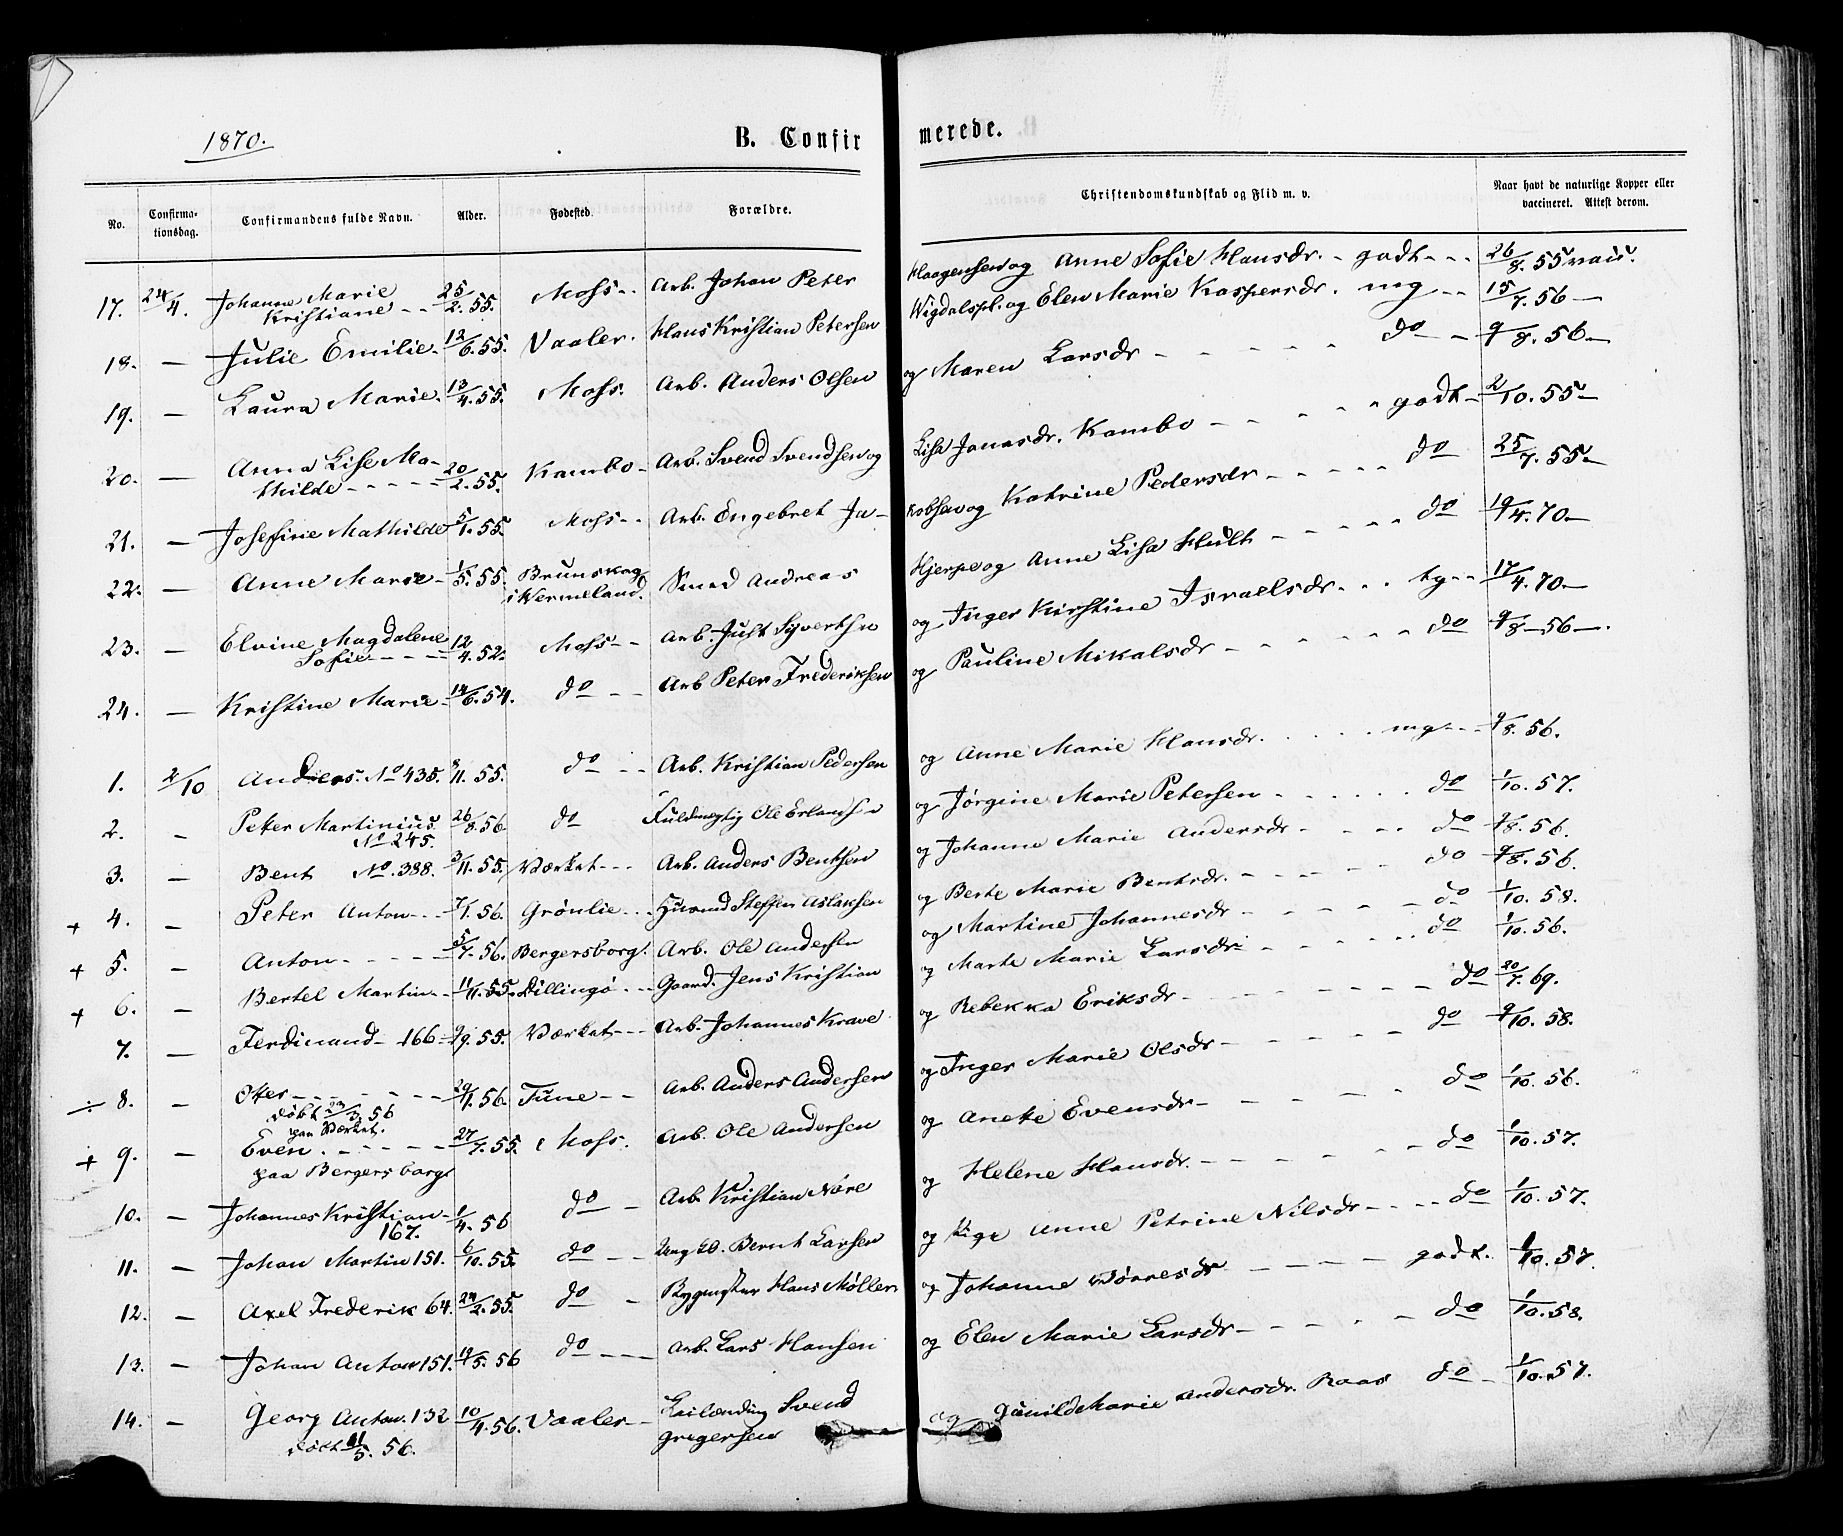 1870.
B. Confirmerede.
No. Confirma-tionsdag. Confirmandens fulde Navn. Alder. Fødested. Forældre. Christendomskundskab og Flid m. v. Naar havt de naturlige Kopper eller vaccineret. Attest derom.
17. 24/4. Johanne Marie Kristiane - - 25/2. 55. Moss - - Arb. Johan Peter Haagensen og Anne Sofie Hansdr. - godt - - - 26/8. 55 vacc.
18. — Julie Emilie - 12/6. 55. Vaaler. Hans Kristian Petersen Wigdalspl. og Elen Marie Kaspersdr. mg - - 15/7. 56 —
19. — Laura Marie. 13/4. 55. Moss. Arb. Anders Olsen og Maren Larsdr - - - - - do - 9/8. 56 —
20. — Anna Lise Ma-thilde - - - - - 20/2. 55. Kambo - Arb. Svend Svendsen og Lisa Jonasdr. Kambo - - - - - godt - 2/10. 55 —
21. — Josefine Mathilde 5/1. 55. Moss - - Arb. Engebret Ja-kobsen og Katrine Pedersdr - - - - - do 25/7. 55 —
22. — Anne Marie - 1/5. 55. Brunskog i Wermeland. Smed Andreas Hjerpe og Anne Lisa Hult - - - - - do 19/4. 70 —
23. — Elvine Magdalene Sofie - - - - 12/4. 52. Moss - - Arb. Just Syvertsen og Inger Kirstine Israelsdr - - - tg - - 17/4. 70 —
24. — Kristine Marie - 14/6. 54. do - - Arb Peter Frederiksen og Pauline Mikalsdr - - - - - - do 9/8 — 56 —
1. 2/10 Anders. No 435. 8/11. 55. do - - Arb. Kristian Pedersen og Anne Marie Hansdr. - - - - mg - - - 9/8. 56.
2. - Peter Martinius No 245. 26/8. 56 do Fuldmægtig Ole Erlandsen og Jørgine Marie Petersen - - - - - - do 1/10. 57.
3. — Bent No. 388. 3/11. 55. Værket - - - Arb. Anders Bentsen og Johanne Marie Andersdr - - - - do 9/8. 56.
+ 4. - Peter Anton - - - 7/1. 56. Grönlie - - Husmd Steffen Aslaksen og Berte Marie Bentsdr. - - - - - do 9/8. 56.
+ 5. - Anton - - - - - 5/7. 56. Bergersborg. Arb. Ole Andersen og Martine Johannesdr - - - - - do 1/10. 58.
+ 6. - Bertel Martin - 11/11. 55. Dillingö - - - Gaard. Jens Kristian og Marte Marie Larsdr - - - - - do 1/10. 56.
7. — Ferdinand - 166 - /9. 55. Værket - - - Arb. Johannes Krave og Rebekka Eriksdr - - - - - - do 20/7. 69.
÷ 8. - - - - - - - - 29/1. 56. Tune - - Arb. Anders Andersen og Inger Marie Olsdr - - - - - do 9/10. 58.
döbt 23/3. 56
paa Værket.
+ 9. — Even. - - - - - 27/7. 55. Moss. Arb. Ole Andersen og Aneke Evensdr - - - - - - do 1/10. 56.
paa Bergersborg
10. — Johannes Kristian - 167. 1/4. 56 do - Arb. Kristian Nöre og Helene Hansdr. - - - - - - do 1/10. 57.
11. — Johan Martin 151. 6/10. 55. do - - Ungkl. Bernt Larsen og Pige Anne Petrine Nilsdr - - - - do 1/10. 57.
12. — Axel Frederik 64. 24/2. 55. do - Bygmester Hans Møller og Johanne Börresdr - - - - - godt. 1/10. 57.
13. — Johan Anton 151. 19/5. 56 do - - - Arb. Lars Hansen og Elen Marie Larsdr - - - - - do 1/10. 58.
14. — Georg Anton. 132 10/4. 56. Vaaler - Svend Gregersen og Marie Andersdr. Raas do - 1/10. 57.
döbt 11/5. 56.